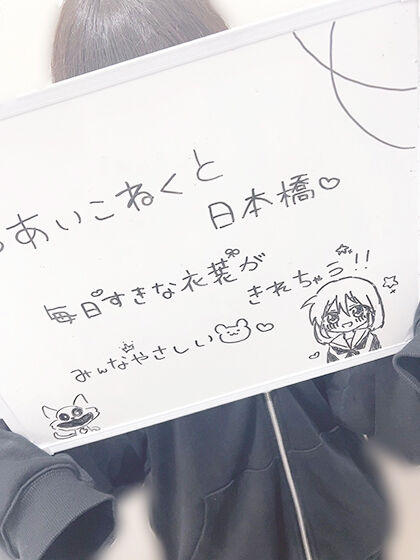 あいこねくと
日本橋♡
毎日すきな衣装が
きれちゃう!!
みんなやさしい